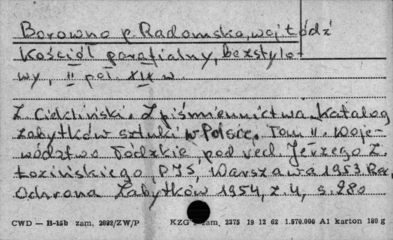 Borowno p. Radomsko, wojt. Łódź
Kościół parafialny, bezstylo-
wy, II poł. XIX w.
Z. Ciekliński. Z piśmiennictwa. Katalog
zabytków sztuki w Polsce. Tom II. Woje-
wództwo Łódzkie, pod red. Jerzego Z.
Łozińskiego PIS, Warszawa 1953 Rec.
Ochrona Zabytków 1954, z. 4, s. 280
CWD — B-15b zam. 2092/ZW/P KZG zam. 2275 19 12 62 1.570.000 A1 karton 180 g